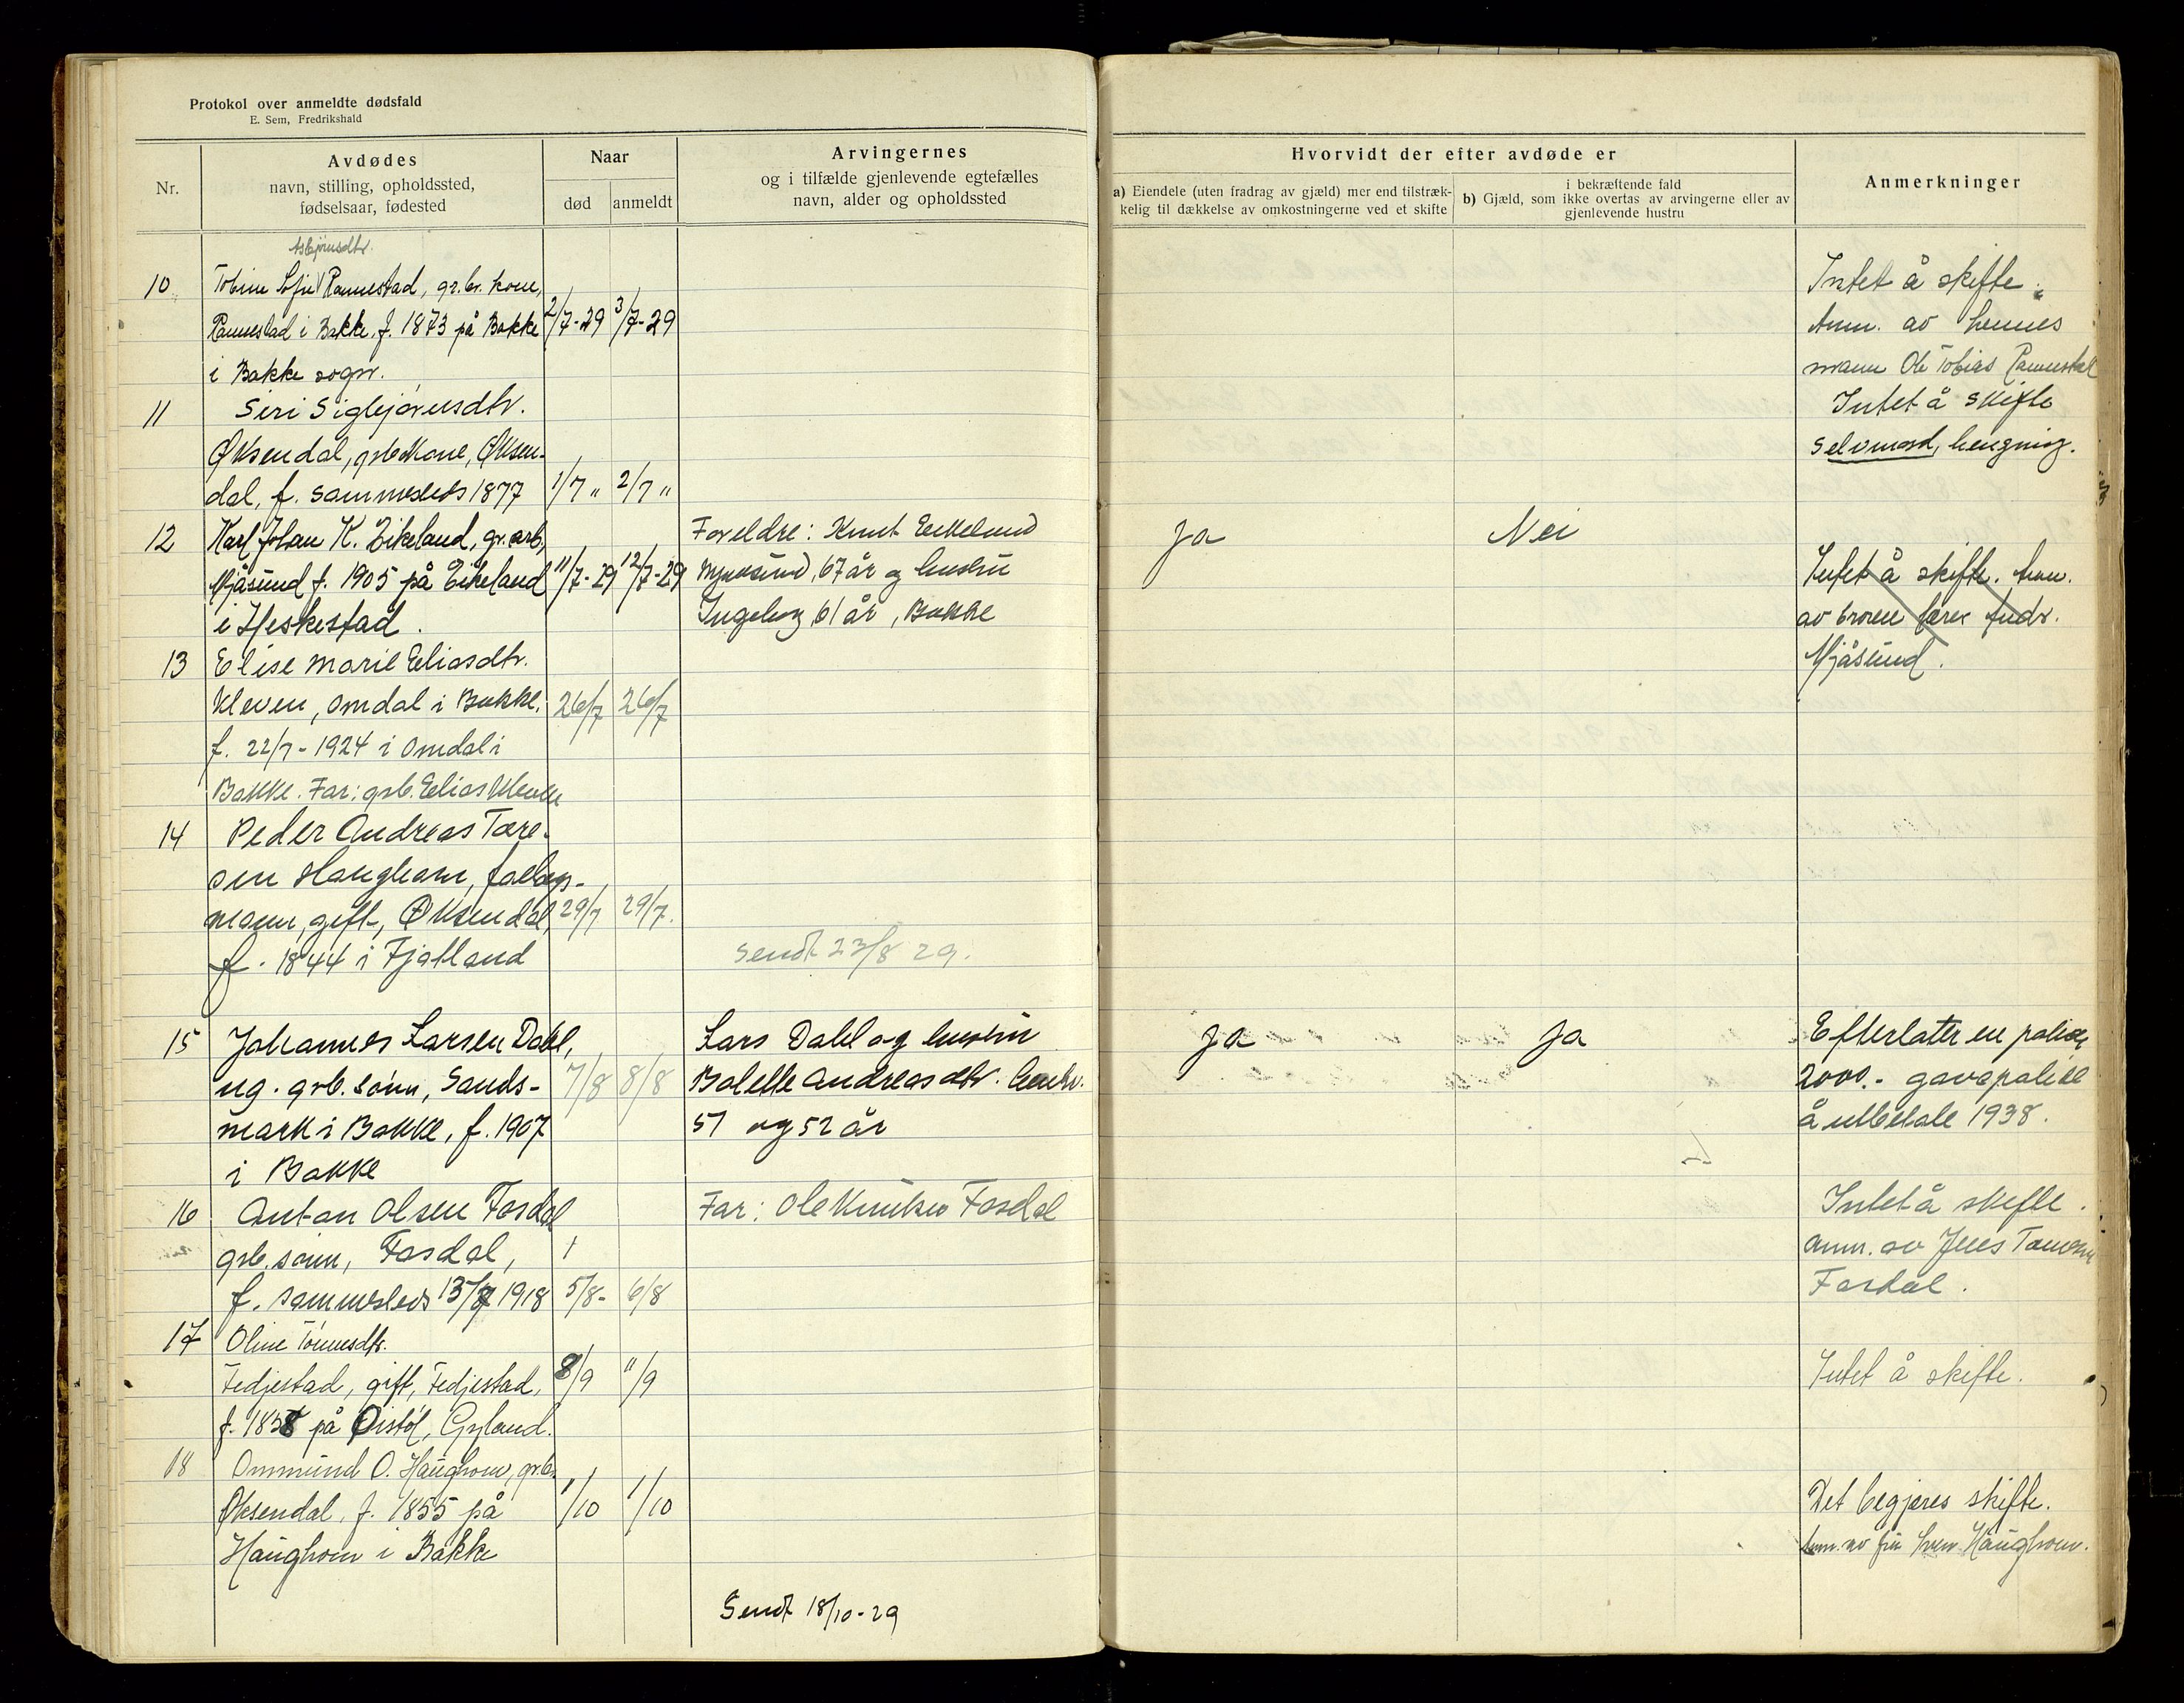 Protokol over anmeldte dødsfald
E. Sem, Fredrikshald
Nr.
Avdødes
navn, stilling, opholdssted,
fødselsaar, fødested
Naar
død
anmeldt
Arvingernes
og i tilfælde gjenlevende egtefælles
navn, alder og opholdssted
Hvorvidt der efter avdøde er
a) Eiendele (uten fradrag av gjæld) mer end tilstræk-
kelig til dækkelse av omkostningerne ved et skifte
i bekræftende fald
b) Gjæld, som ikke overtas av arvingerne eller av
gjenlevende hustru
Anmerkninger
Asbjørnsdtr.
10 Tobine Sofie Rannestad, gr.br. kone,
Rannestad i Bakke, f. 1873 på Bakke 2/7-29 3/7-29
i Bakke sogn.
Intet å skifte.
Anm. av hennes
mann Ole Tobias Rannestad
11 Siri Sigbjørnsdtr.
Øksendal, grb.kone, Øksen-
dal, f. sammesteds 1877 1/7 " 2/7 "
Intet å skifte
Selvmord, hengning.
12 Karl Johan K. Eikeland, gr.arb.,
Mjåsund f. 1905 på Eikeland 11/7-29 12/7-29
i Heskestad.
Foreldre: Knut Eikeland
Mjåsund, 67 år og hustru
Ingeborg 61 år, Bakke
Ja
Nei
Intet å skifte. Anm.
av broren lærer Andr.
Mjåsund.
13 Elise Marie Eliasdtr.
Kleven, Omdal i Bakke. 26/7 26/7
f. 22/7-1924 i Omdal i
Bakke. Far: grb. Elias Kleven
14 Peder Andreas Tore-
sen Haughom, føderåds-
mann, gift, Øksendal, 29/7 29/7.
f. 1844 i Fjotland
Sendt 23/8 29.
15 Johannes Larsen Dahl,
ug. grb. sønn, Sands- 7/8 8/8
mark i Bakke, f. 1907
i Bakke
Lars Dahl og hustru
Bolette Andreasdtr. henhv.
57 og 52 år
Ja
Ja
Efterlater en polise,
2000.- gavepolise
å utbetale 1938.
16 Anton Olsen Fosdal
grb.sønn, Fosdal,
f. sammesteds 13/7 1918 5/8- 6/8
Far: Ole Knutsen Fosdal
Intet å skifte.
anm. av Jens Tønnesen
Fosdal.
17 Oline Tønnesdtr.
Fedjestad, gift, Fedjestad, 8/9 11/9
f. 1858 på Øistøl, Gyland.
Intet å skifte.
18 Ommund O. Haughom, gr.br.
Øksendal, f. 1855 på 1/10 1/10
Haughom i Bakke
Det begjæres skifte.
Anm. av fru Haughom.
Sendt 18/10-29